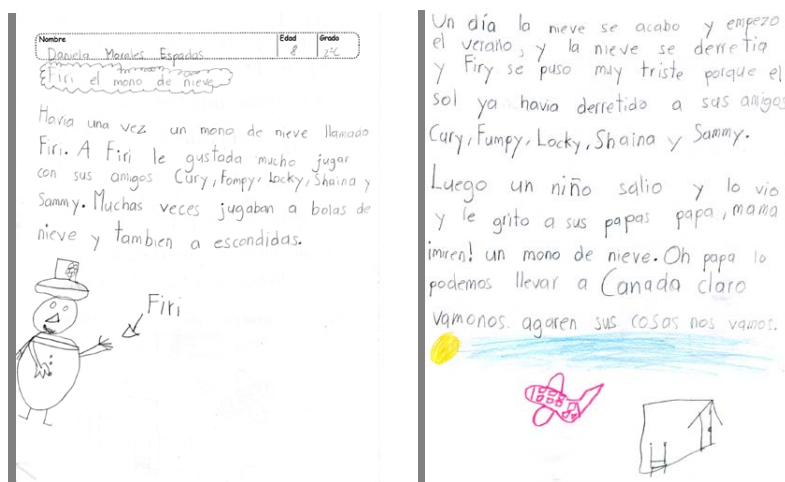 Nombre
Edad
Grado
Daniela Morales Espadas
8
2°C
Firi el mono de nieve
Havia una vez un mono de nieve llamado
Firi. A Firi le gustada mucho jugar
con sus amigos Cury, Fompy, Locky, Shaina y
Sammy. Muchas veces jugaban a bolas de
nieve y tambien a escondidas.
Firi
Un día la nieve se acabo y empezo
el verano, y la nieve se derretia
y Firy se puso muy triste porque el
sol ya havia derretido a sus amigos
Cury, Fumpy, Locky, Shaina y Sammy.
Luego un niño salio y lo vio
y le grito a sus papas papa, mama
¡miren! un mono de nieve. Oh papa lo
podemos llevar a Canada claro
vamonos. agaren sus cosas nos vamos.